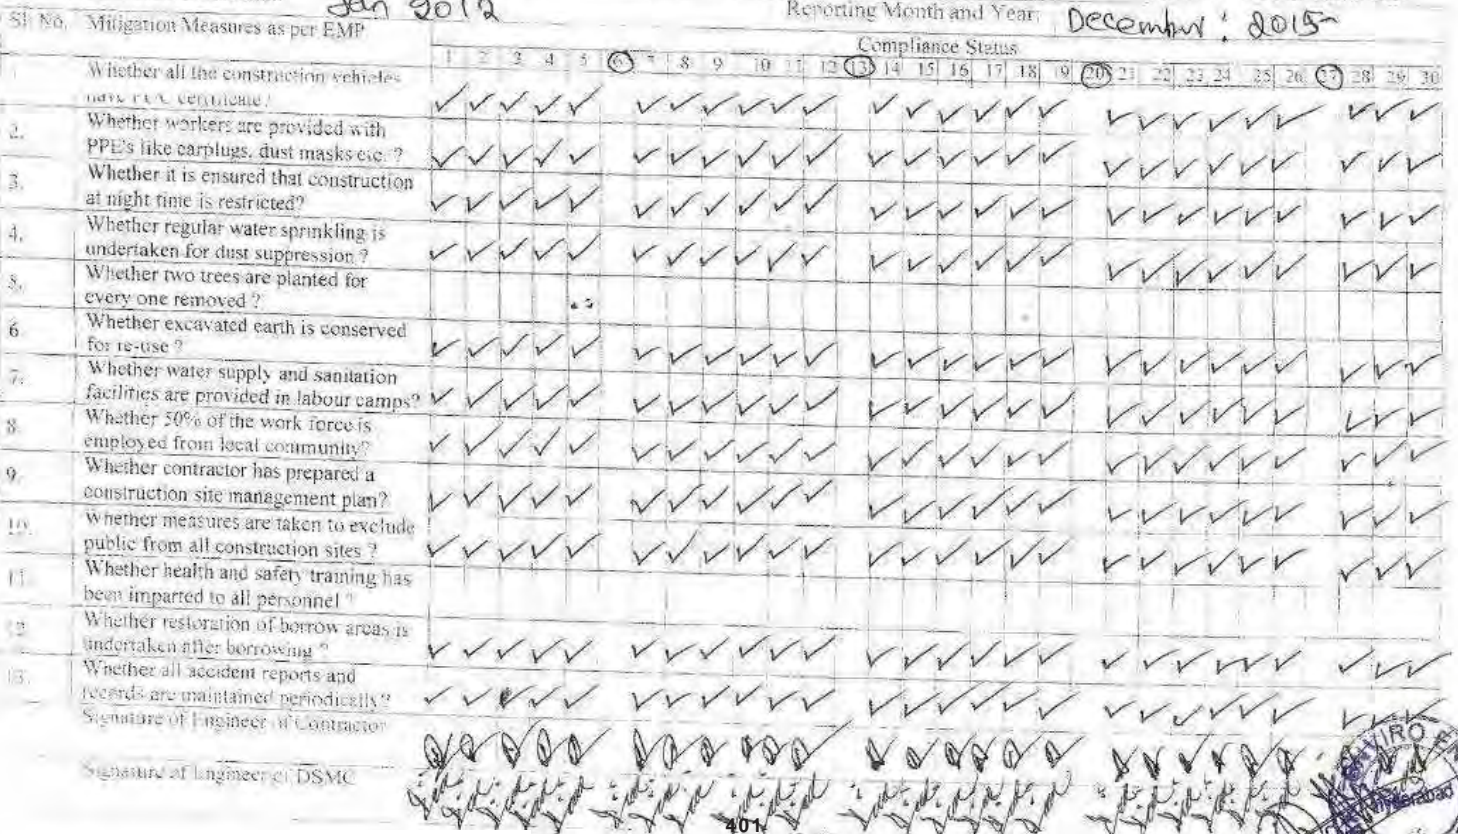 Jan 2012
Reporting Month and Year: December : 2015
Sl. No. Mitigation Measures as per EMP
Compliance Status
1 2 3 4 5 6 7 8 9 10 11 12 13 14 15 16 17 18 19 20 21 22 23 24 25 26 27 28 29 30
Whether all the construction vehicles
have PUC certificate?
2. Whether workers are provided with
PPE's like earplugs, dust masks etc. ?
3. Whether it is ensured that construction
at night time is restricted?
4. Whether regular water sprinkling is
undertaken for dust suppression ?
5. Whether two trees are planted for
every one removed ?
6. Whether excavated earth is conserved
for re-use ?
7. Whether water supply and sanitation
facilities are provided in labour camps?
8. Whether 50% of the work force is
employed from local community?
9. Whether contractor has prepared a
construction site management plan?
10. Whether measures are taken to exclude
public from all construction sites ?
11. Whether health and safety training has
been imparted to all personnel ?
12. Whether restoration of borrow areas is
undertaken after borrowing ?
13. Whether all accident reports and
records are maintained periodically?
Signature of Engineer of Contractor
Signature of Engineer of DSMC
Hyderabad
401